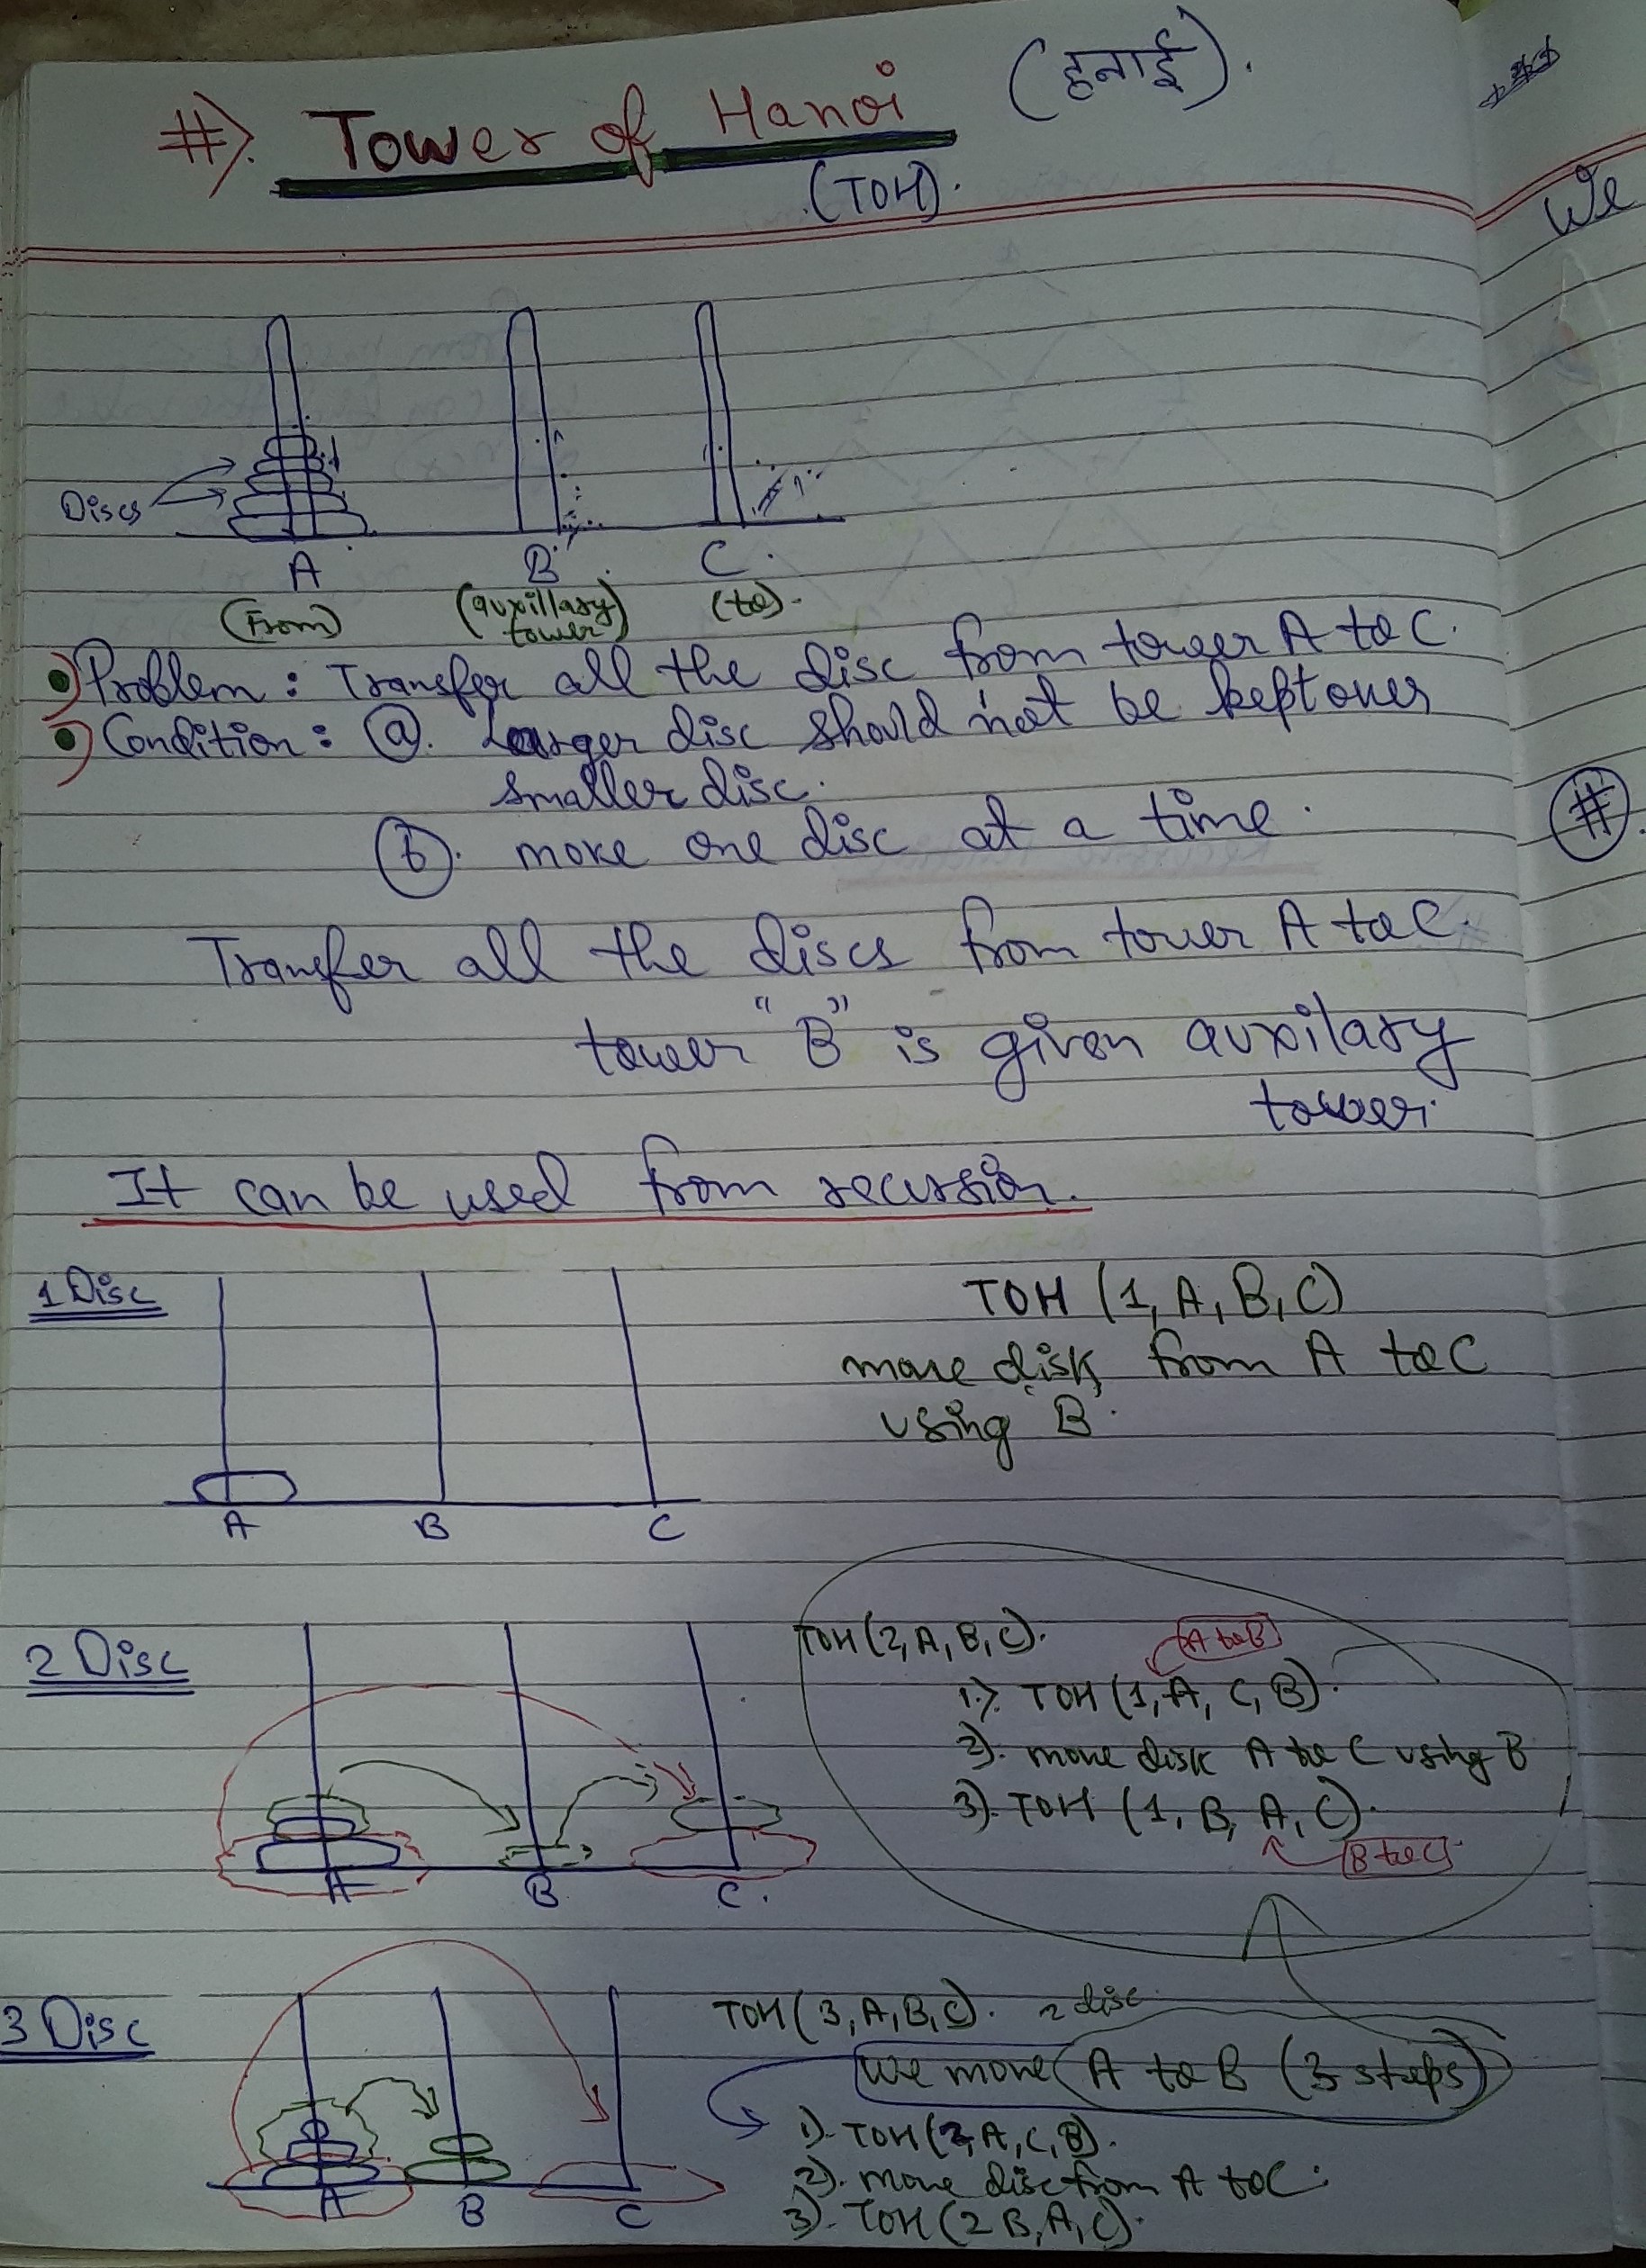 #). Tower of Hanoi (हनाई).
(TOH).
Discs
A B C
(From) (auxillary tower) (to)
Problem : Transfer all the disc from tower A to C.
Condition : (a). Larger disc should not be kept over
smaller disc.
(b). move one disc at a time.
Transfer all the discs from tower A to C.
tower "B" is given auxilary
tower.
It can be used from recursion.
1 Disc
TOH (1, A, B, C)
move disk from A to C
using B.
A B C
2 Disc
TOH (2, A, B, C).
A to B
1). TOH (1, A, C, B).
2). move disk A to C using B
3). TOH (1, B, A, C).
B to C
A B C.
3 Disc
TOH (3, A, B, C). 2 disc
We move A to B (3 steps)
1). TOH (2, A, C, B).
2). move disc from A to C.
3). TOH (2 B, A, C).
A B C
We
#.